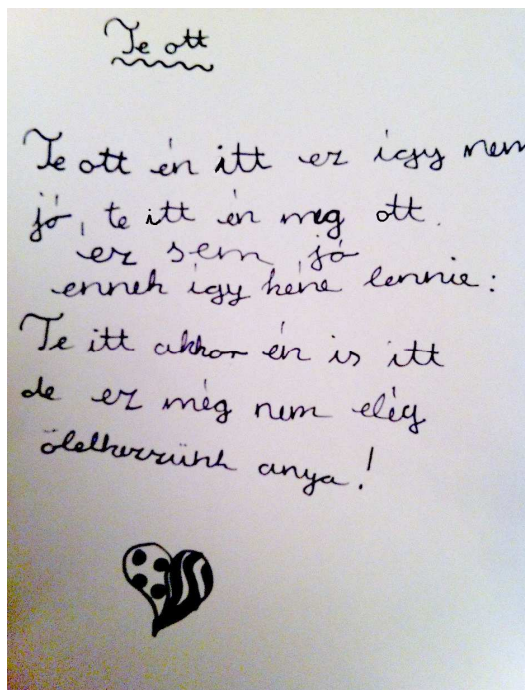 Te ott
Te ott én itt ez így nem
jó, te itt én meg ott.
ez sem jó
ennek így kéne lennie:
Te itt akkor én is itt
de ez még nem elég
ölelkezzünk anya!